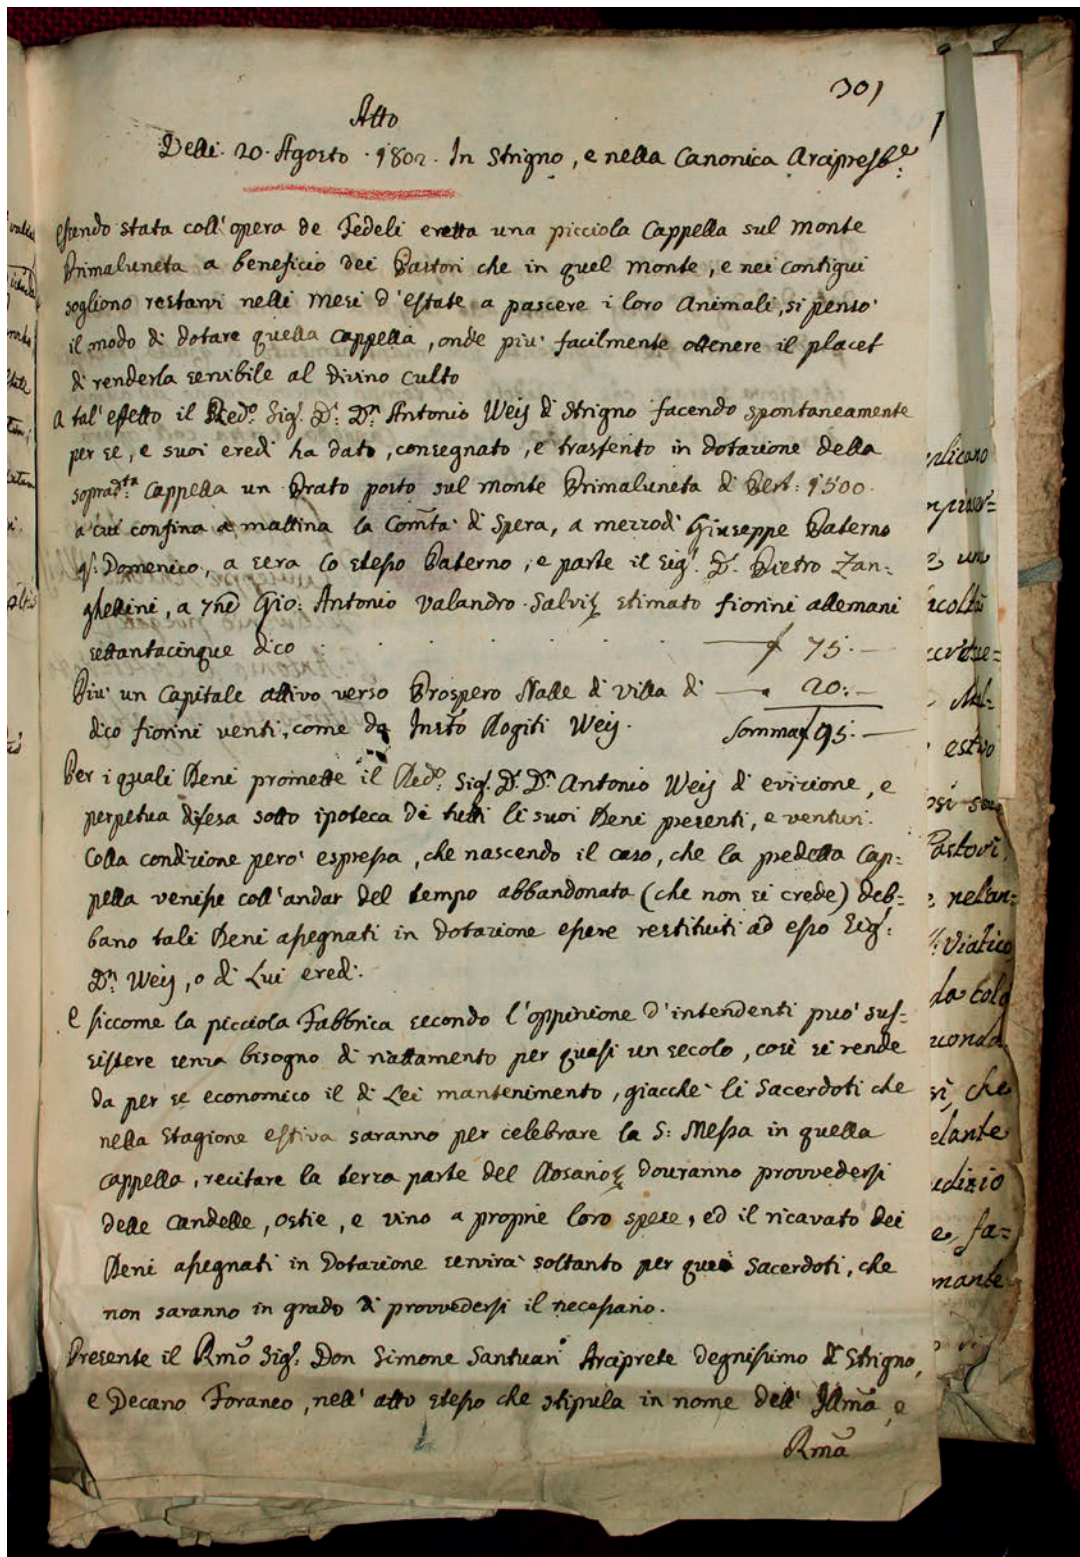 301
Atto
Delli. 20. Agosto. 1802. In Strigno, e nella Canonica Arcipresb.e
essendo stata coll'opera de Fedeli eretta una picciola Cappella sul Monte
Primaluneta a beneficio dei Pastori che in quel Monte, e nei contigui
sogliono restarvi nelli Mesi d'estate a pascere i loro Animali, si pensò
il modo di dotare quella Cappella, onde più facilmente ottenere il placet
di renderla servibile al Divino Culto
A tal'effetto il Red.o Sig.r D.r D.n Antonio Weis di Strigno facendo spontaneamente
per se, e suoi eredi ha dato, consegnato, e trasferito in dotazione della
soprad.ta Cappella un Prato posto sul Monte Primaluneta di Pert: 1500.
a cui confina a mattina la Com̃tà di Spera, a mezzodì Giuseppe Paterno
q. Domenico, a sera lo stesso Paterno, e parte il Sig.r D. Pietro Zan-
ghellini, a 7ne Gio: Antonio Valandro. Salvis stimato fiorini allemani
settantacinque dico f 75.
Più un Capitale attivo verso Prospero Nalle di Villa di 20:
dico fiorini venti, come da Insto Rogiti Weis. Somma f 95.
Per i quali Beni promette il Red.o Sig.r D.r D.n Antonio Weis di evizione, e
perpetua difesa sotto ipoteca di tutti li suoi Beni presenti, e venturi.
Colla condizione però espressa, che nascendo il caso, che la predetta Cap=
pella venisse coll'andar del tempo abbandonata (che non si crede) deb=
bano tali Beni assegnati in Dotazione essere restituiti ad esso Sig.r
D.n Weis, o di Lui eredi.
E siccome la picciola Fabbrica secondo l'oppinione d'intendenti può sus=
sistere senza bisogno di riattamento per quasi un secolo, così si rende
da per se economico il di Lei mantenimento, giacchè li Sacerdoti che
nella Stagione estiva saranno per celebrare la S: Messa in quella
Cappella, recitare la terza parte del Rosario dovranno provvedersi
delle Candelle, Ostie, e vino a proprie loro spese, ed il ricavato dei
Beni assegnati in Dotazione servirà soltanto per quei Sacerdoti, che
non saranno in grado di provvedersi il necessario.
Presente il Rm̃o Sig.r Don Simone Santuari Arciprete degnissimo di Strigno,
e Decano Foraneo, nell'atto stesso che stipula in nome dell'Illm̃a, e
Rm̃a